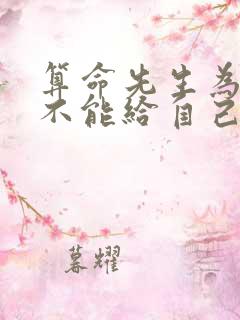 算命先生為
不能給自己
暮耀